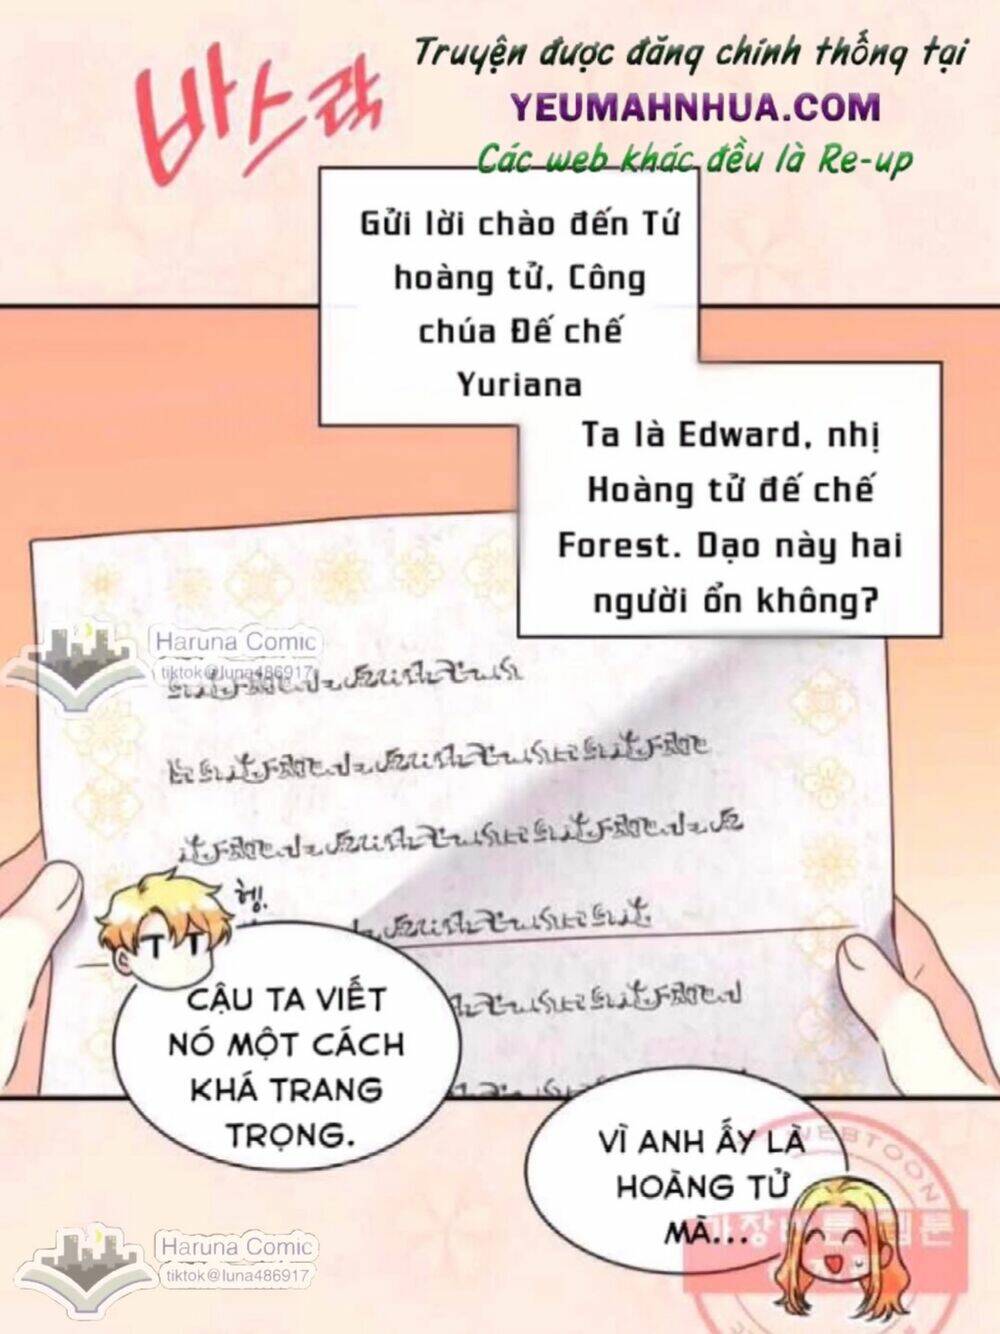 Truyện được đăng chính thống tại
YEUMAHNHUA.COM
Các web khác đều là Re-up
바스락
Gửi lời chào đến Tứ
hoàng tử, Công
chúa Đế chế
Yuriana
Ta là Edward, nhị
Hoàng tử đế chế
Forest. Dạo này hai
người ổn không?
Haruna Comic
tiktok@luna486917
헹!
CẬU TA VIẾT
NÓ MỘT CÁCH
KHÁ TRANG
TRỌNG.
VÌ ANH ẤY LÀ
HOÀNG TỬ
MÀ...
WEBTOON
Haruna Comic
tiktok@luna486917